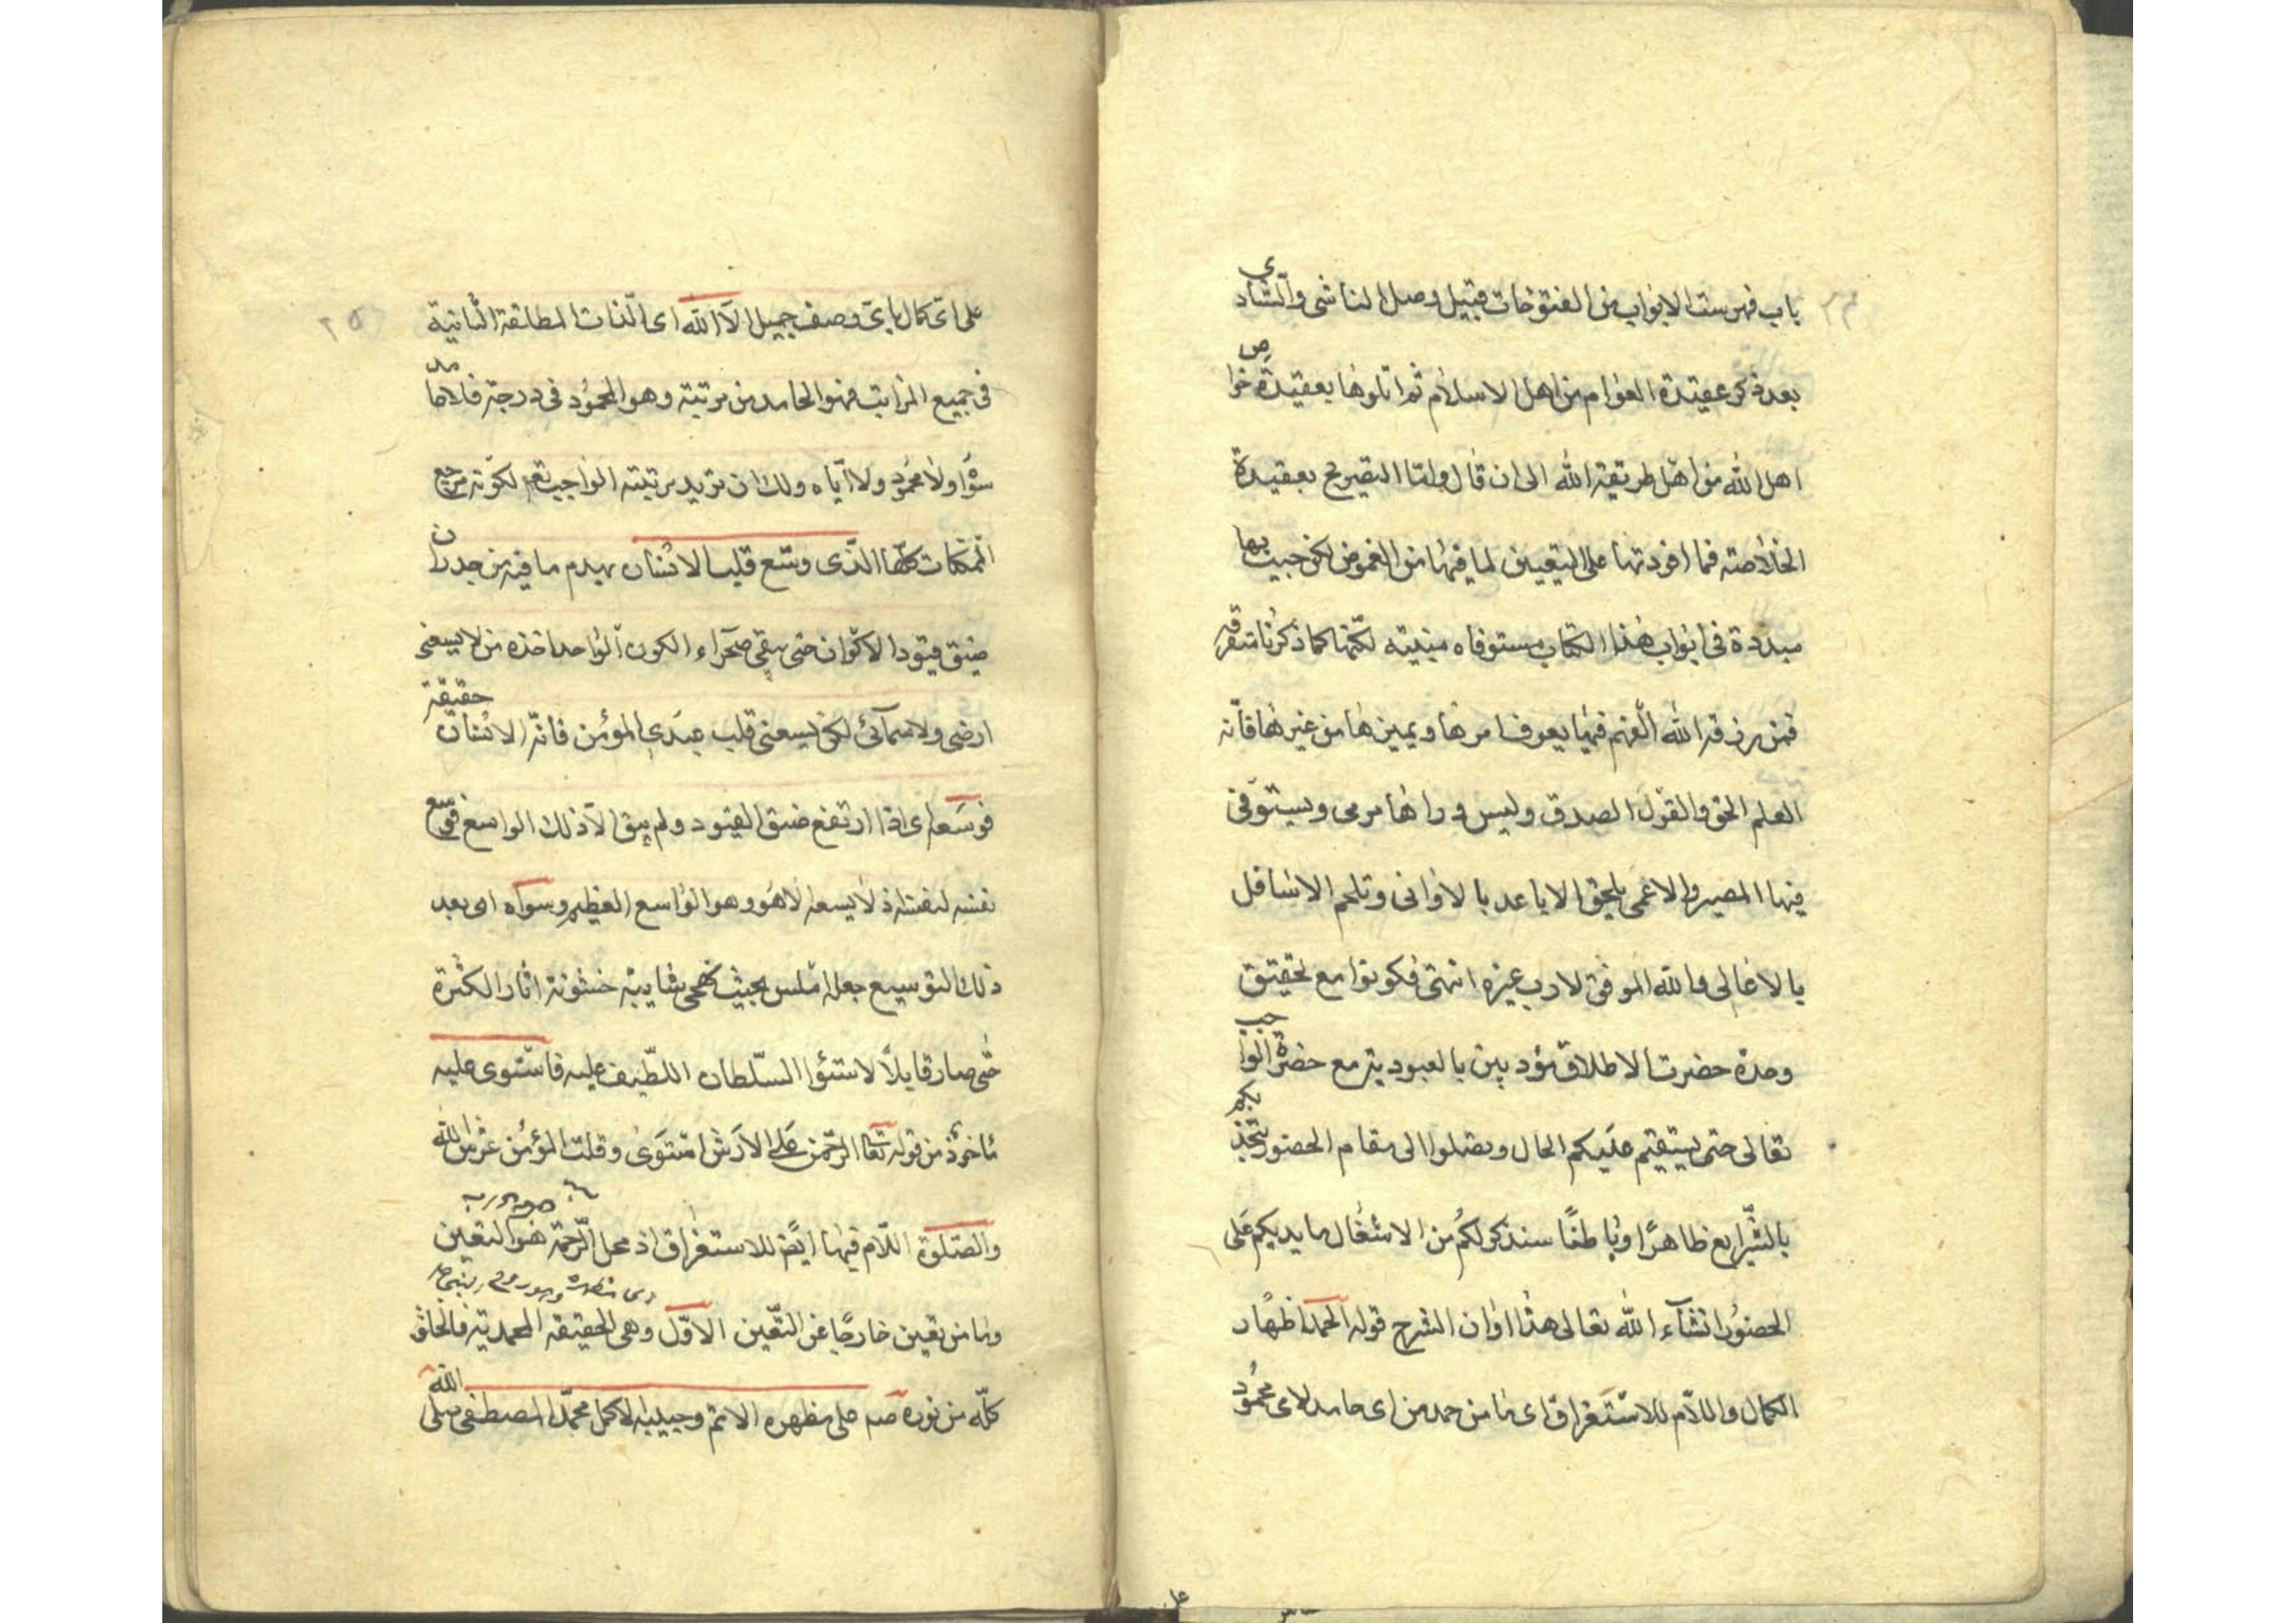 باب فهرست الابواب من الفتوحات قبيل وصل الناشى والشادى
بعد ذكر عقيدة العوام من اهل الاسلام ثم اتلوها بعقيدة خواص
اهل الله من اهل طريقة الله الى ان قال واما التصريح بعقيدة
الخلاصة فما افردتها على التعيين لما فيها من الغموض لكن جيت بها
مبددة فى ابواب هذا الكتاب مستوفاه مبينة لكنها كما ذكرنا متفرقه
فمن رزقه الله الفهم فيها يعرف امرها ويميزها من غيرها فانه
العلم الحق والقول الصدق وليس وراها مرمى ويستوى
فيها البصير والاعمى يلحق الاباعد بالادانى وتلحم الاسافل
بالاعالى والله الموفق لا رب غيره انتهى فكونوا مع تحقيق
وحدة حضرت الاطلاق مؤدبين بالعبودية مع حضرة الواجب
تعالى حتى يستقيم عليكم الحال وتصلوا الى مقام الحضور
بالشرايع ظاهرًا وباطنًا سنذكر لكم من الاشغال ما يديكم على
الحضور انشاء الله تعالى هذا اوان الشرح قوله الحمد اظهار
الكمال واللام للاستغراق اى ما من حمد من اى حامد لاى محمود
٢٥
على اى كمال باى وصف جميل الا الله اى الذات المطلقة الثابتة
فى جميع المراتب فهو الحامد من مرتبة وهو المحمود فى درجة فلا حامد
سوا ولا محمود ولا اياه ولك ان تريد مرتبته الواجب تعم لكونه مرجع
الممكنات كلها الذى وسع قلب الانسان بهدم ما فيه من جدران
ضيق قيود الاكوان حتى بقى صحراء الكون الواحد اخذه من لا يسعنى
ارضى ولا سمائى لكن يسعنى قلب عبدى المؤمن فانه الانسان حقيقة
فوسعه اى اذا ارتفع ضيق القيود ولم يبق الا ذلك الواسع فوسع
نفسه لنفسه اذ لا يسعه الا هو وهو الواسع العظيم وسواه اى بعد
ذلك التوسيع جعله املس بحيث شايبة خشونة اثار الكثرة
حتى صار قابلاً لاستوا السلطان اللطيف عليه فاستوى عليه
ماخوذ من قوله تعا الرحمن على العرش استوى وقلب المؤمن عرش الله
والصلوة اللام فيها ايضا للاستغراق اذ محل الرحمة هو التعين
وما من تعين خارجًا عن التعين الاول وهى الحقيقة المحمدية فالخلق
كله من نوره صه على مظهره الاتم وحبيبه الاكمل محمد المصطفى صلى الله